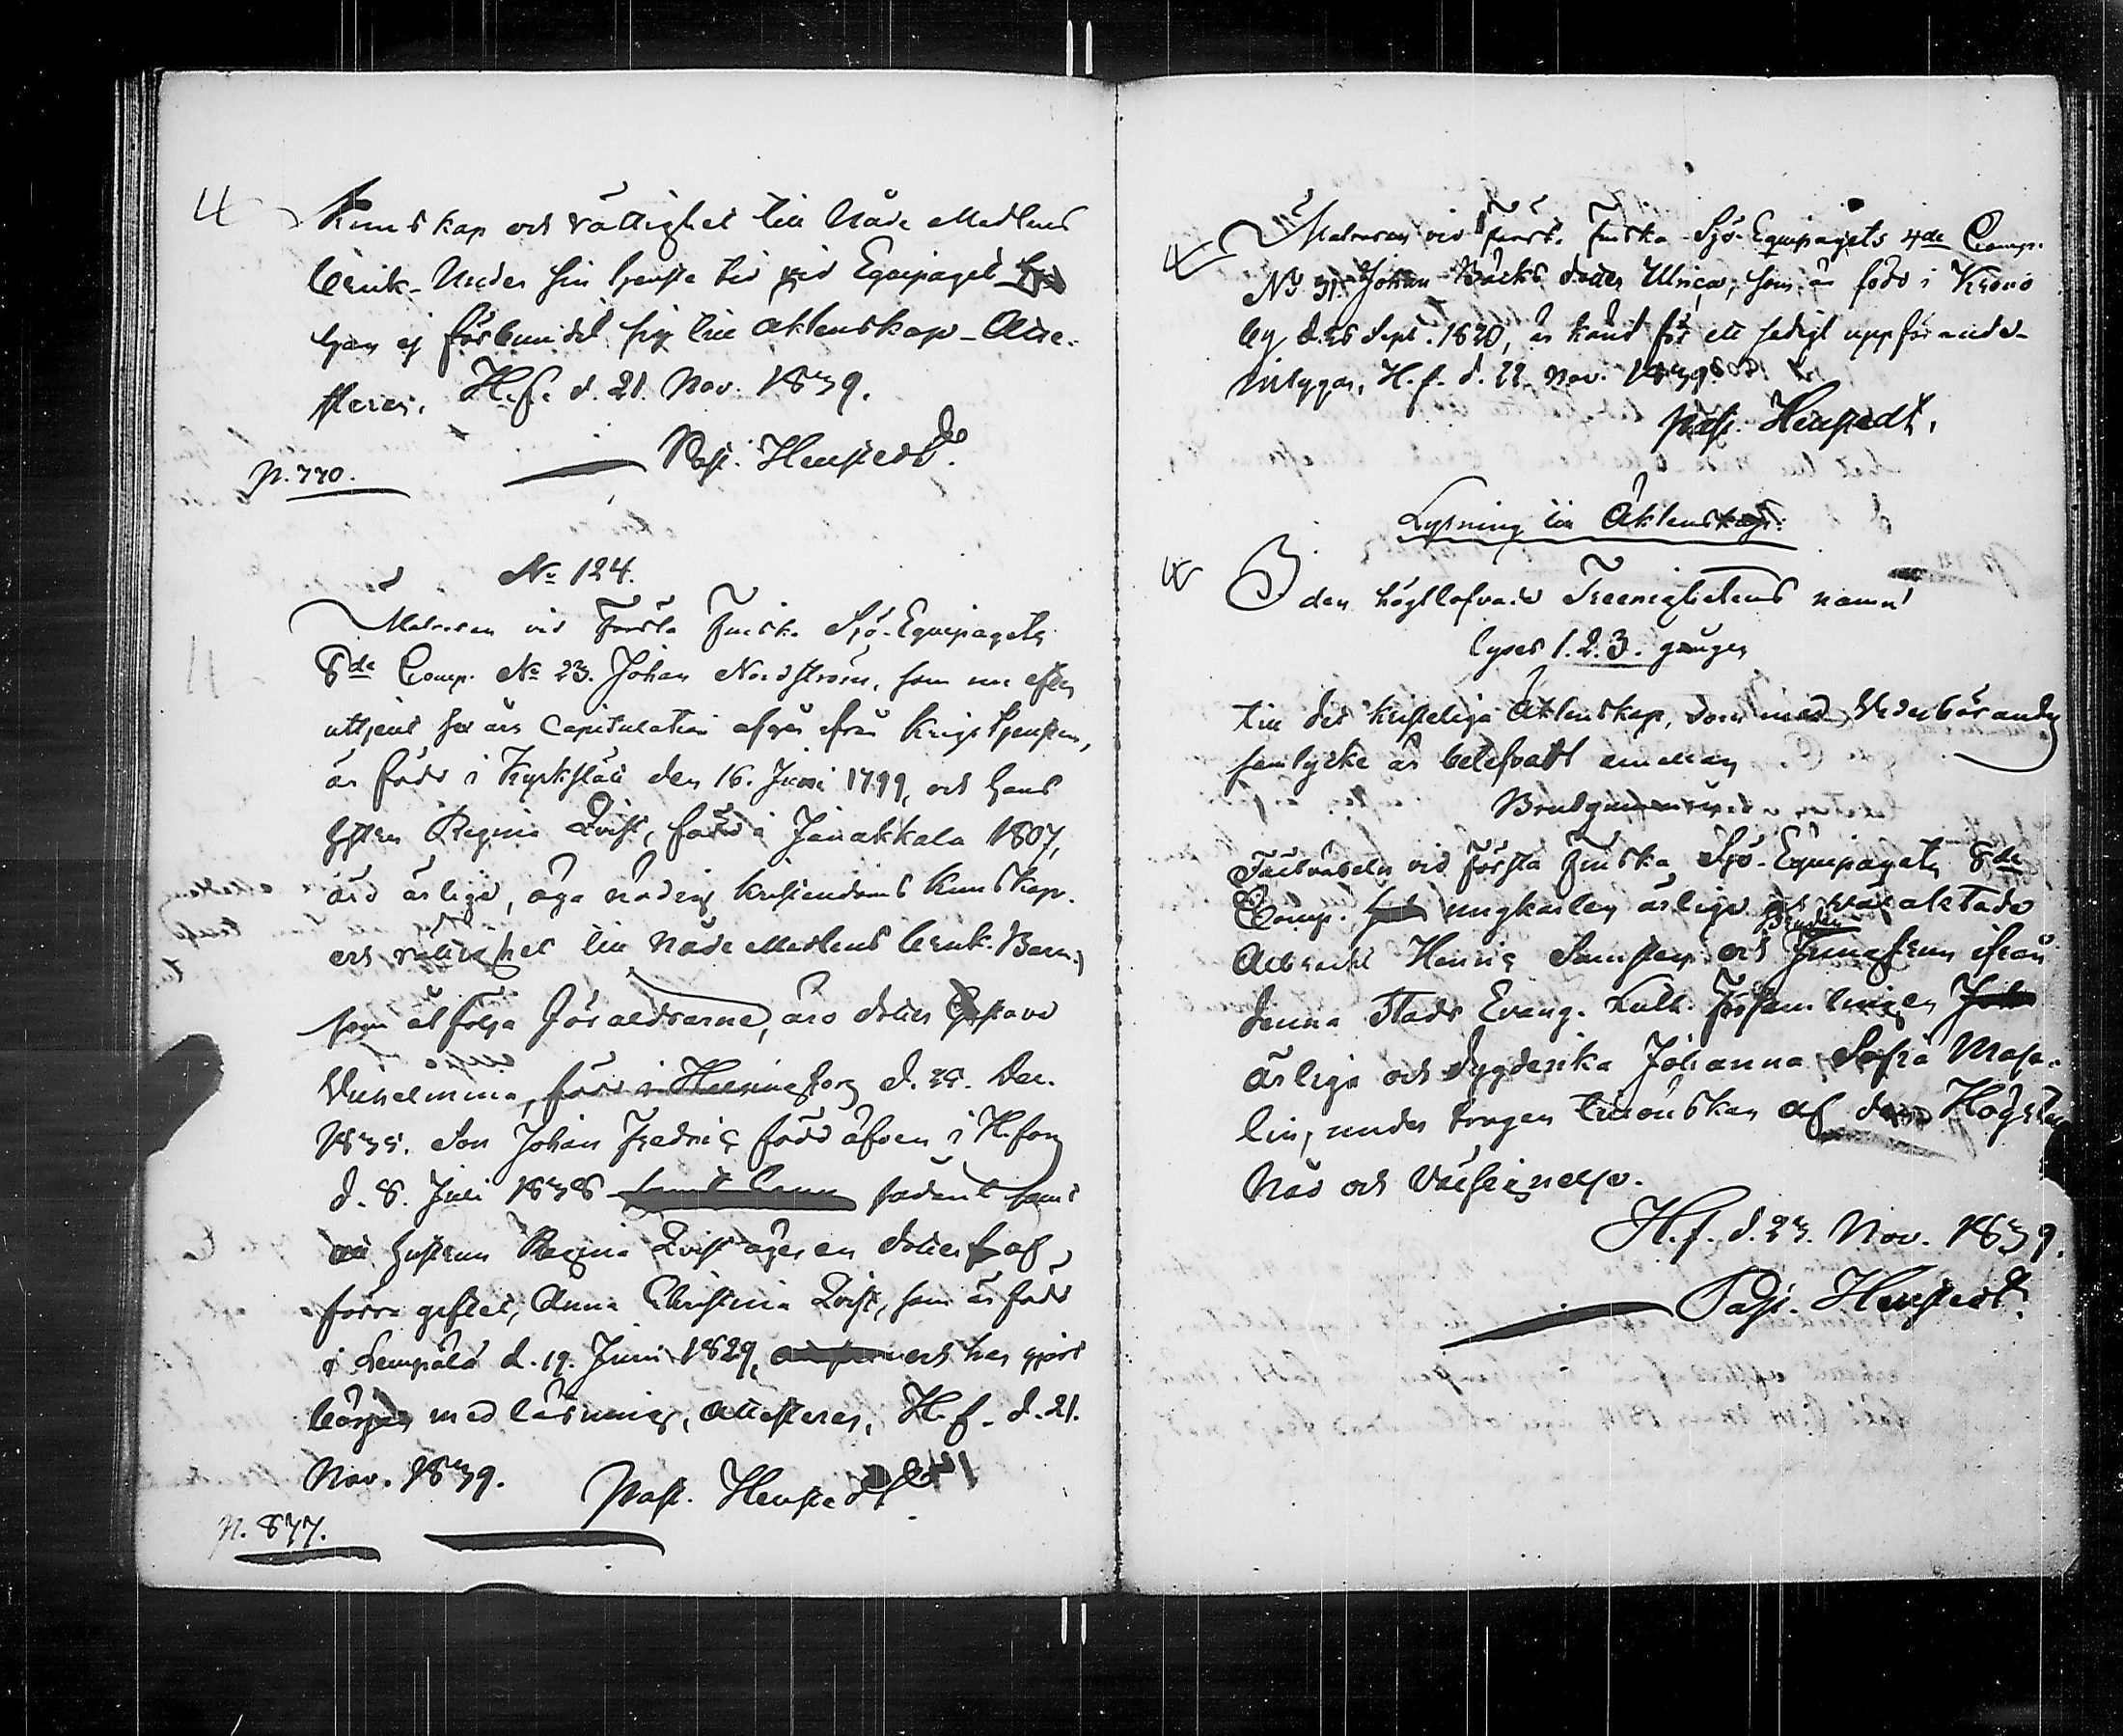 Kunskap och rättighet till Nåde Medlens
bruk. Under sin tjenste tid vid Equipaget
han ej förbundit sig till äktenskap - Atte-
steras. H.f. d. 21. Nov. 1839.
Past. Henstedt.
p. 770.
No 124.
Matrosen vid Första Finska Sjö-Equipagets
8de Comp. No 23. Johan Nordström, som nu efter
uttjent sex års Capitulation afgår från Krigstjensten,
är född i Kyrkslätt den 16. Juni 1799, och hans
hustru Regina Qvist, född i Janakkala 1807,
äro ärliga, äga nödig kristendoms kunskap
och rättighet till Nåde Medlens bruk. Barn,
som åtfölja föräldrarne, äro dotter Gustava
Wilhelmina, född i Helsingfors d. 25. Dec.
1835. Son Johan Fredric född äfven i H.fors
d. 8. Juli 1838 samt
hustrun Regina Qvist äger en dotter af
förra giftet, Anna Christina Qvist, som är född
i Lempälä d. 19. Juni 1829, och har gjort
början med läsning, attesteras, H.f. d. 21.
Nov. 1839. Past. Henstedt.
p. 877.
Matrosen vid Första Finska Sjö-Equipagets 4de Comp.
No 31. Johan Bäcks dotter Ulrica, som är född i Krono
by d. 26 Sept. 1820, är känd för ett sedigt uppförande
intygas, H.f. d. 22 Nov. 1839.
Past. Henstedt.
Lysning till Äktenskap:
I den höglofvade Treenighetens namn!
lyses 1. 2. 3. gången
till det kristeliga Äktenskap, som med Vederbörandes
samtycke är beteslfatt emellan
Brudgummen
Fältväbeln vid Första Finska Sjö-Equipagets 8de
Comp. ungkarlen ärlige och välaktade
Albrecht Henric Sunsten och Bruden Jungfrun ifrån
denna Stads Evang. Luth. Församlingen
ärliga och dygderika Johanna Sofia Mase-
lin, under trogen tillönskan af den Högstes
Nåd och Välsignelse.
H.f. d. 23. Nov. 1839.
Past. Henstedt.